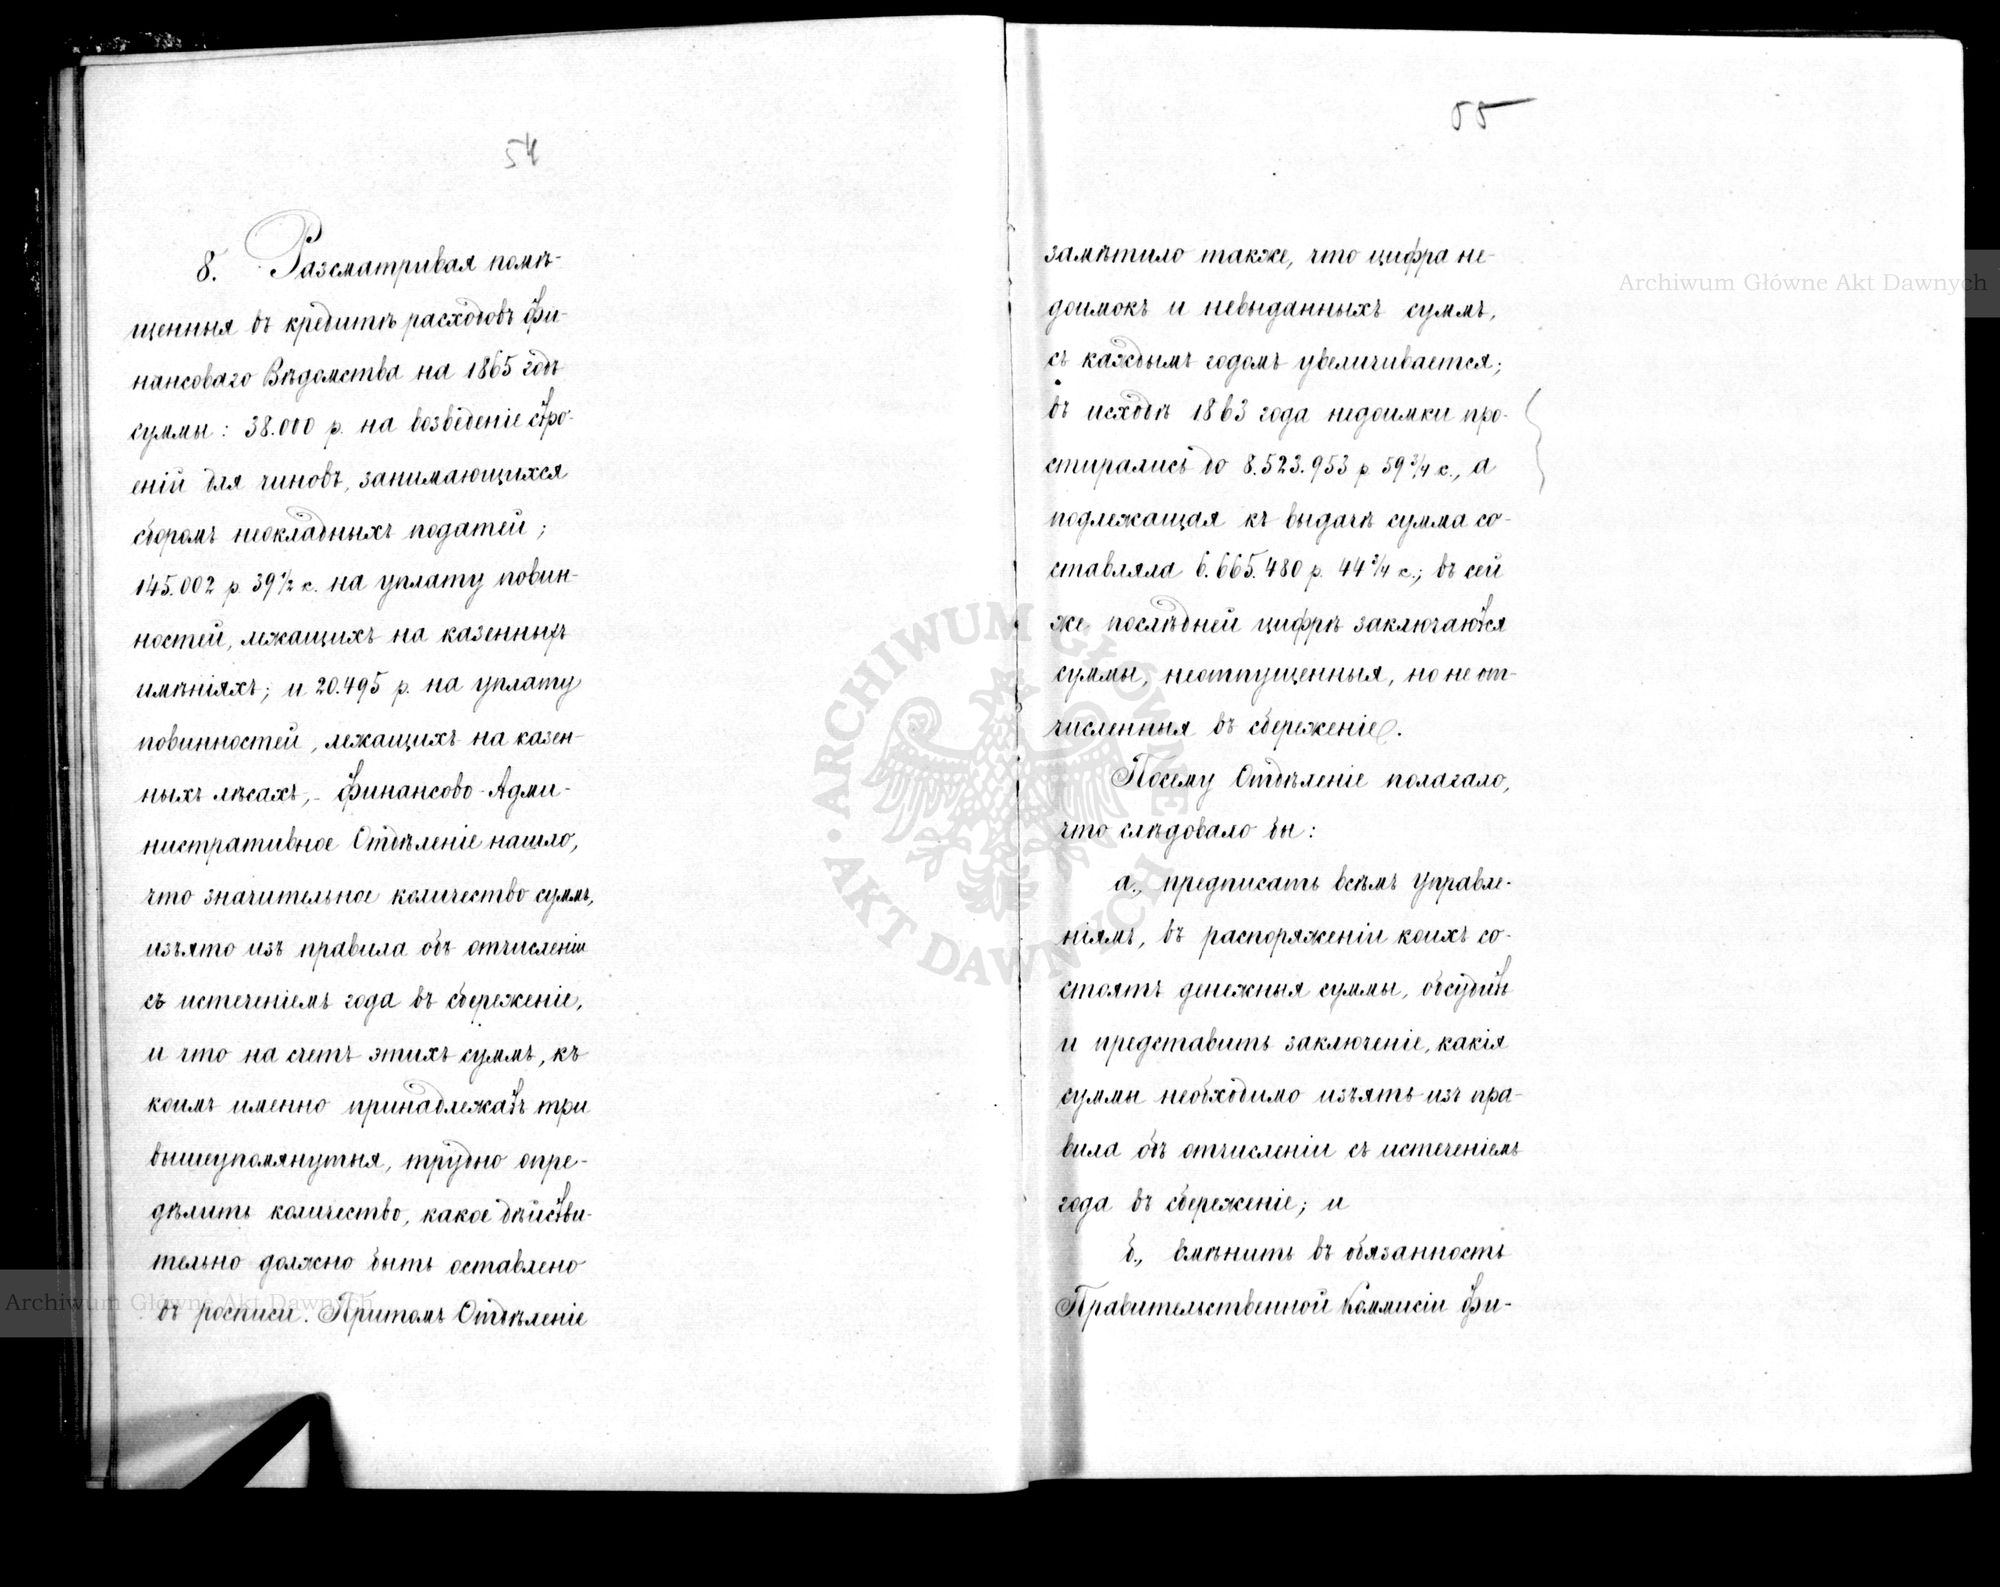 54
8. Разсматривая помѣ-
щенныя въ кредитѣ расходовъ Фи-
нансоваго Вѣдомства на 1865 годъ
суммы: 38.000 р. на возведеніе стро-
еній для чиновъ, занимающихся
сборомъ неокладныхъ податей;
145.002 р. 39 1/2 к. на уплату повин-
ностей, лежащихъ на казенныхъ
имѣніяхъ; и 20.495 р. на уплату
повинностей, лежащихъ на казен-
ныхъ лѣсахъ, - Финансово-Адми-
нистративное Отдѣленіе нашло,
что значительное количество суммъ,
изъято изъ правила объ отчисленіи
съ истеченіемъ года въ сбереженіе,
и что на счетъ этихъ суммъ, къ
коимъ именно принадлежатъ три
вышеупомянутыя, трудно опре-
дѣлить количество, какое дѣйстви-
тельно должно быть оставлено
въ росписи. Притомъ Отдѣленіе
55
замѣтило также, что цифра не-
доимокъ и невыданныхъ суммъ,
съ каждымъ годомъ увеличивается;
въ исходѣ 1863 года недоимки про-
стирались до 8.523.953 р 59 3/4 к., а
подлежащая къ выдачѣ сумма со-
ставляла 6.665.480 р. 44 3/4 к.; въ сей
же послѣдней цифрѣ заключаются
суммы, неотпущенныя, но не от-
численныя въ сбереженіе.
Посему Отдѣленіе полагало,
что слѣдовало бы:
а., предписать всѣмъ Управле-
ніямъ, въ распоряженіи коихъ со-
стоятъ денежныя суммы, обсудить
и представить заключеніе, какія
суммы необходимо изъять изъ пра-
вила объ отчисленіи съ истеченіемъ
года въ сбереженіе; и
б., вмѣнить въ обязанность
Правительственной Коммисіи Фи-
Archiwum Główne Akt Dawnych
Archiwum Główne Akt Dawnych
ARCHIWUM GŁÓWNE AKT DAWNYCH